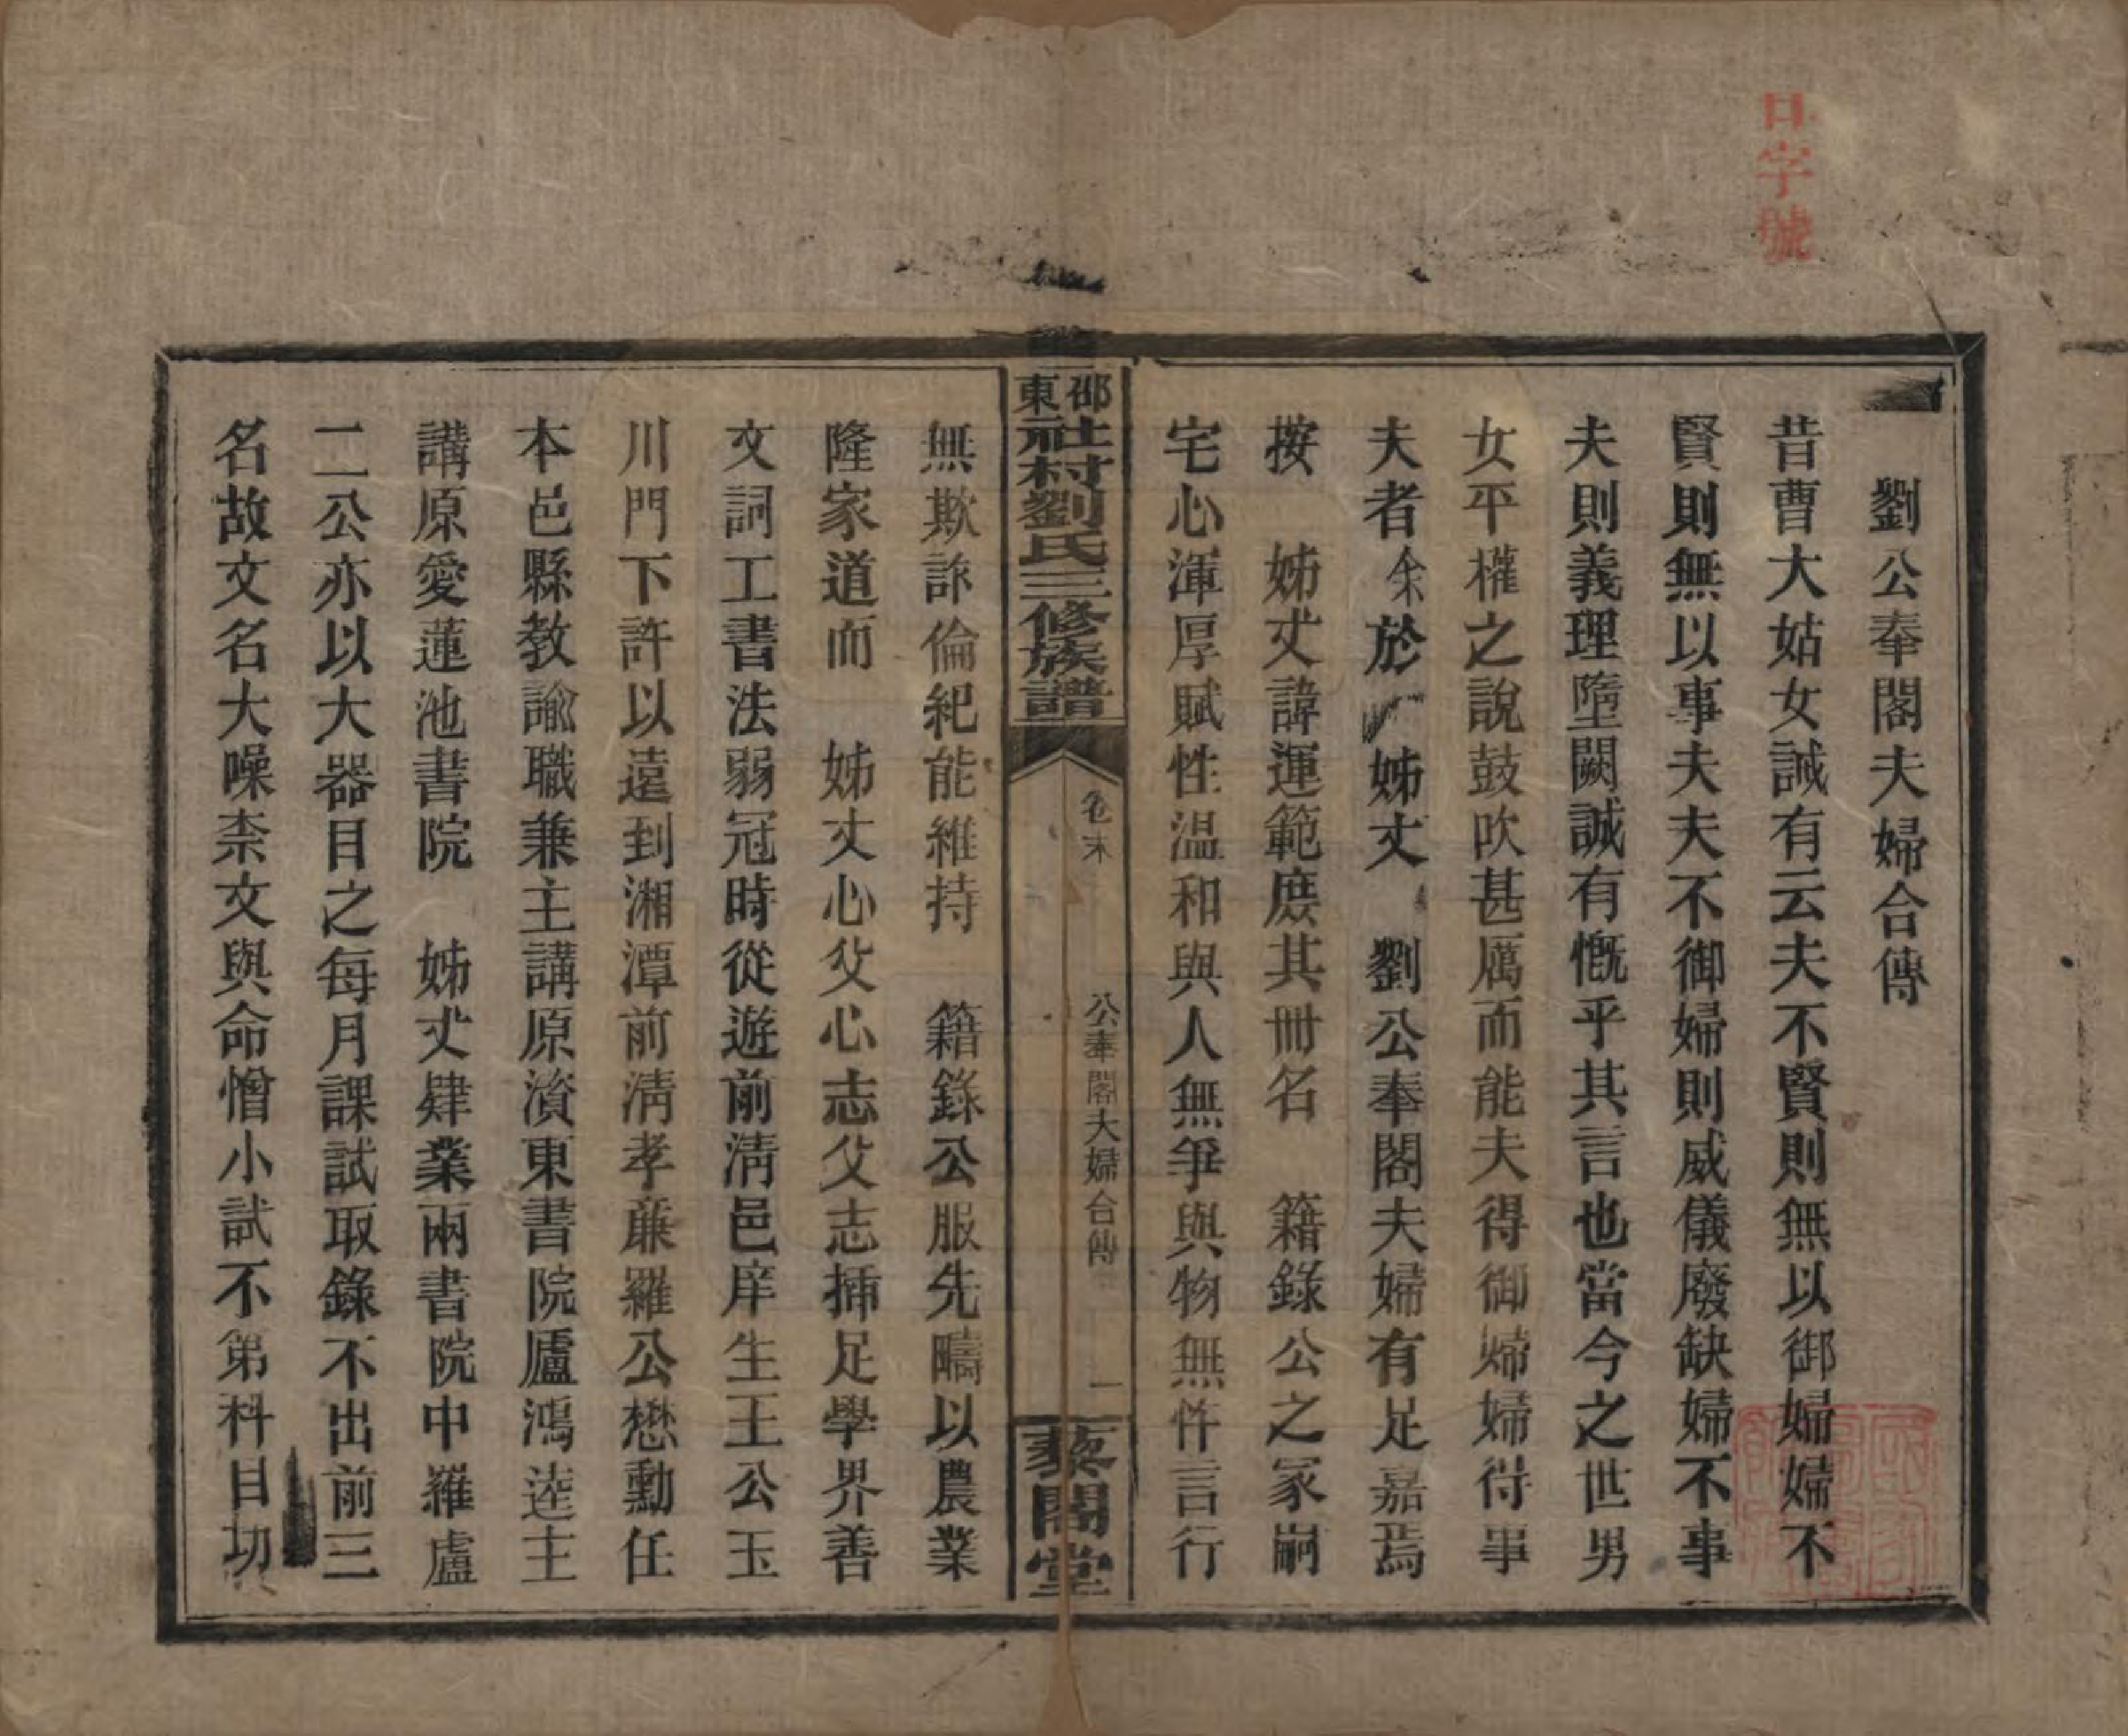 日字號
劉公奉閣夫婦合傳
昔曹大姑女誡有云夫不賢則無以御婦婦不
賢則無以事夫夫不御婦則威儀廢缺婦不事
夫則義理墮闕誠有慨乎其言也當今之世男
女平權之說鼓吹甚厲而能夫得御婦婦得事
夫者余於 姊丈 劉公奉閣夫婦有足嘉焉
按 姊丈諱運範庶其冊名 籍錄公之冢嗣
宅心渾厚賦性温和與人無爭與物無忤言行
邵東社村劉氏三修族譜
卷末
公奉閣夫婦合傳
一
藜閣堂
無欺詐倫紀能維持 籍錄公服先疇以農業
隆家道而 姊丈心父心志父志揷足學界善
文詞工書法弱冠時從遊前淸邑庠生王公玉
川門下許以遠到湘潭前淸孝亷羅公懋勳任
本邑縣教諭職兼主講原濱東書院廬鴻逵主
講原愛蓮池書院 姊丈肄業兩書院中羅盧
二公亦以大器目之每月課試取錄不出前三
名故文名大噪柰文與命憎小試不第科目切